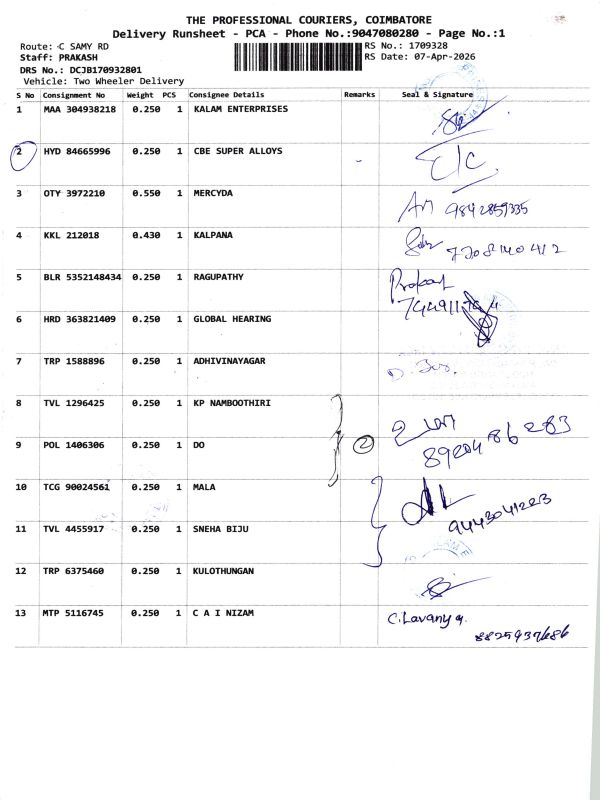 THE PROFESSIONAL COURIERS, COIMBATORE
Delivery Runsheet - PCA - Phone No.:9047080280 - Page No.:1
Route: C SAMY RD
Staff: PRAKASH
DRS No.: DCJB170932801
Vehicle: Two Wheeler Delivery
RS No.: 1709328
RS Date: 07-Apr-2026
S No Consignment No Weight PCS Consignee Details Remarks Seal & Signature
1 MAA 304938218 0.250 1 KALAM ENTERPRISES
2 HYD 84665996 0.250 1 CBE SUPER ALLOYS
3 OTY 3972210 0.550 1 MERCYDA 9842859335
4 KKL 212018 0.430 1 KALPANA 7708140412
5 BLR 5352148434 0.250 1 RAGUPATHY Prakash
6 HRD 363821409 0.250 1 GLOBAL HEARING
7 TRP 1588896 0.250 1 ADHIVINAYAGAR
8 TVL 1296425 0.250 1 KP NAMBOOTHIRI
9 POL 1406306 0.250 1 DO 2 8920486283
10 TCG 90024561 0.250 1 MALA
11 TVL 4455917 0.250 1 SNEHA BIJU 9443041223
12 TRP 6375460 0.250 1 KULOTHUNGAN
13 MTP 5116745 0.250 1 C A I NIZAM C.Lavanya